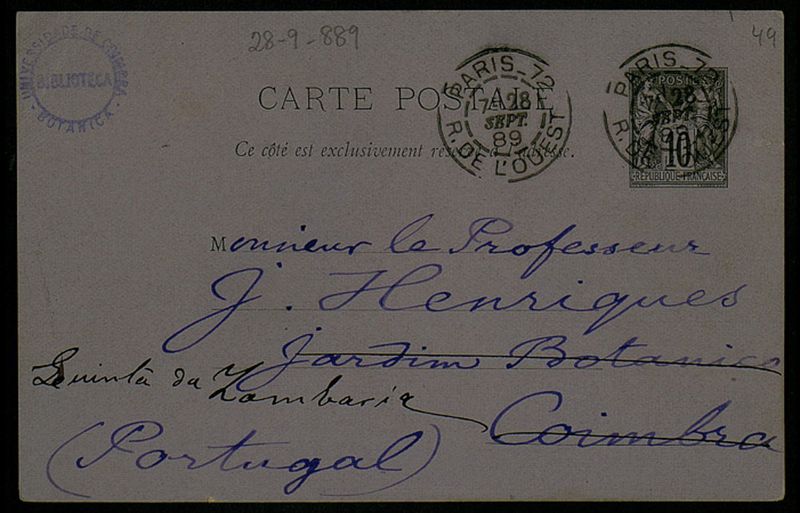 UNIVERSIDADE DE COIMBRA
BIBLIOTECA
BOTANICA
28-9-889
49
PARIS_72
7E 28
SEPT.
89
R. DE L'OUEST
PARIS_72
28
SEPT.
R. DE L'OUEST
POSTES
10
RÉPUBLIQUE FRANÇAISE
CARTE POSTALE
Ce côté est exclusivement réservé à l'adresse.
Monsieur le Professeur
J. Henriques
Jardim Botanico
Quinta da
Coimbra
(Portugal)